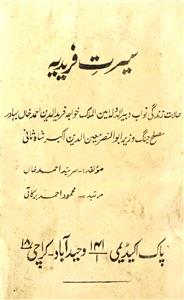 سیرتِ فریدیہ
حالات زندگی نواب دبیر الدولہ امین الملک خواجہ فرید الدین احمد خاں بہادر
مصلح جنگ وزیر ابو النصر معین الدین اکبر شاہ ثانی
مؤلفہ:۔ سرسید احمد خاں
مرتبہ:۔ محمود احمد برکاتی
پاک اکیڈیمی ۱۴۱ وحید آباد۔ کراچی ۱۸